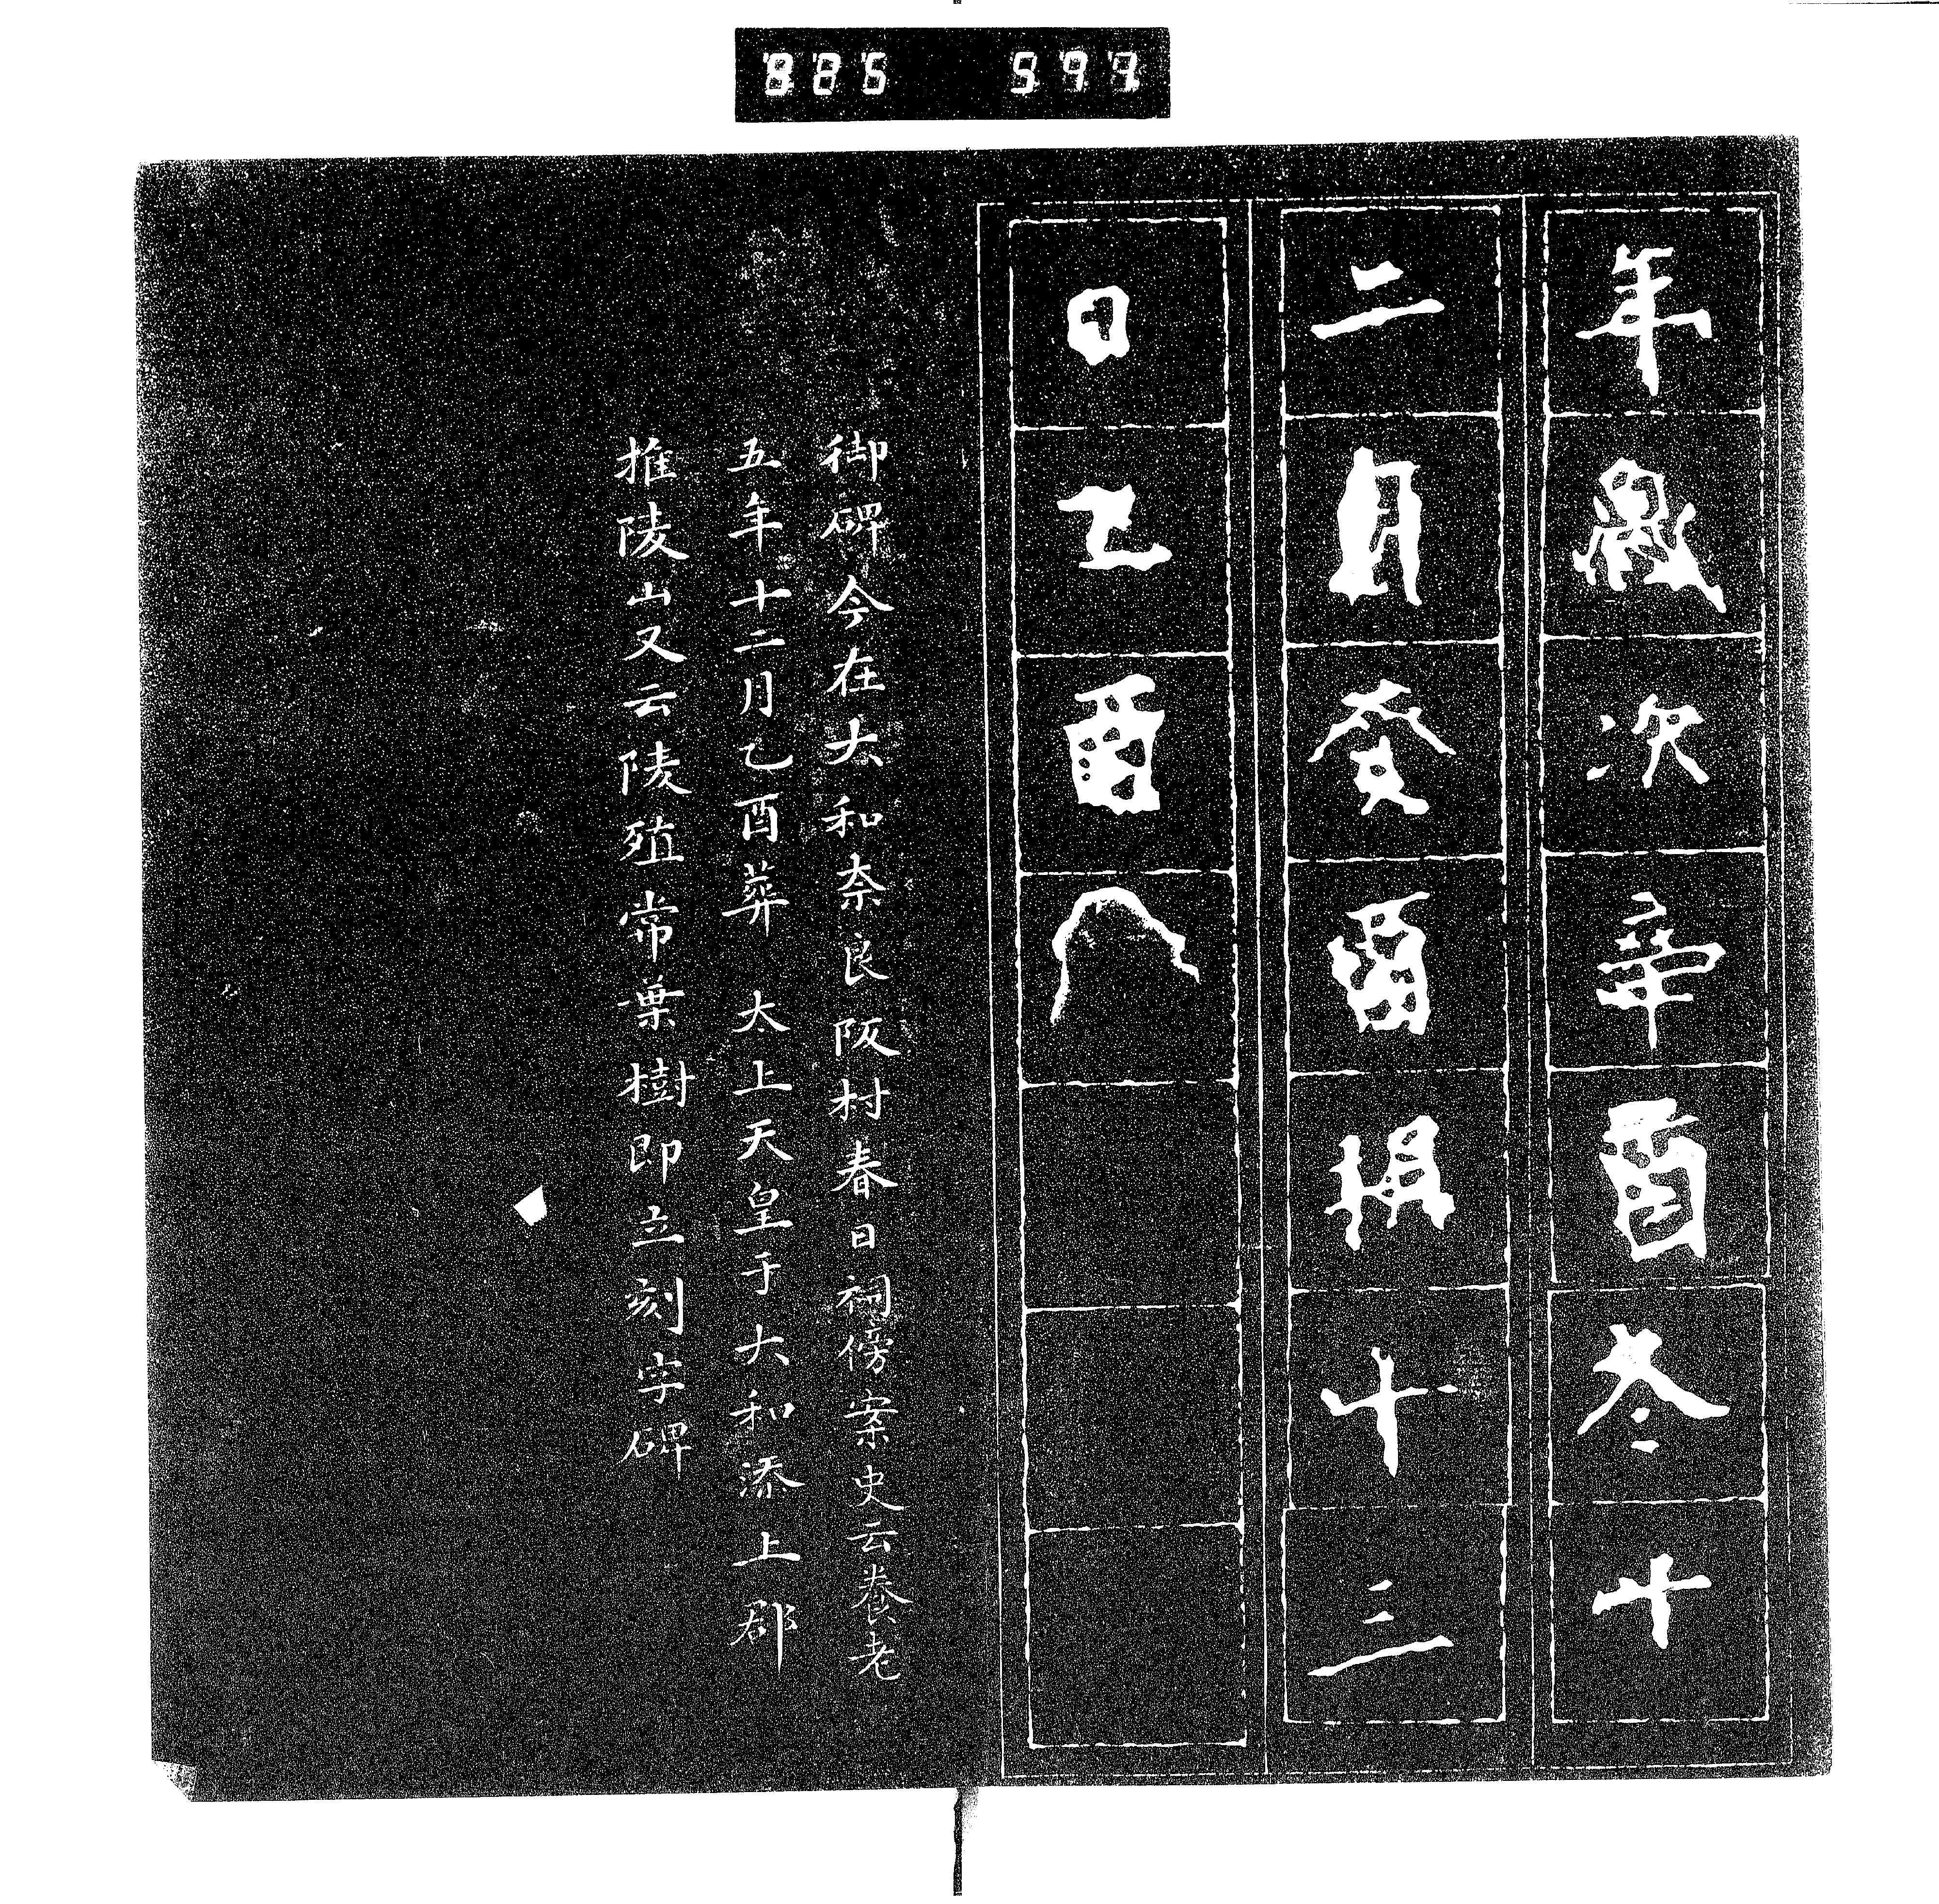 825 597
年歲次辛酉冬十
二月癸酉朔十三
日乙酉
御碑今在大和奈良阪村春日祠傍案史云養老
五年十二月乙酉葬 太上天皇于大和添上郡
推陵山又云陵殖常葉樹即立刻字碑